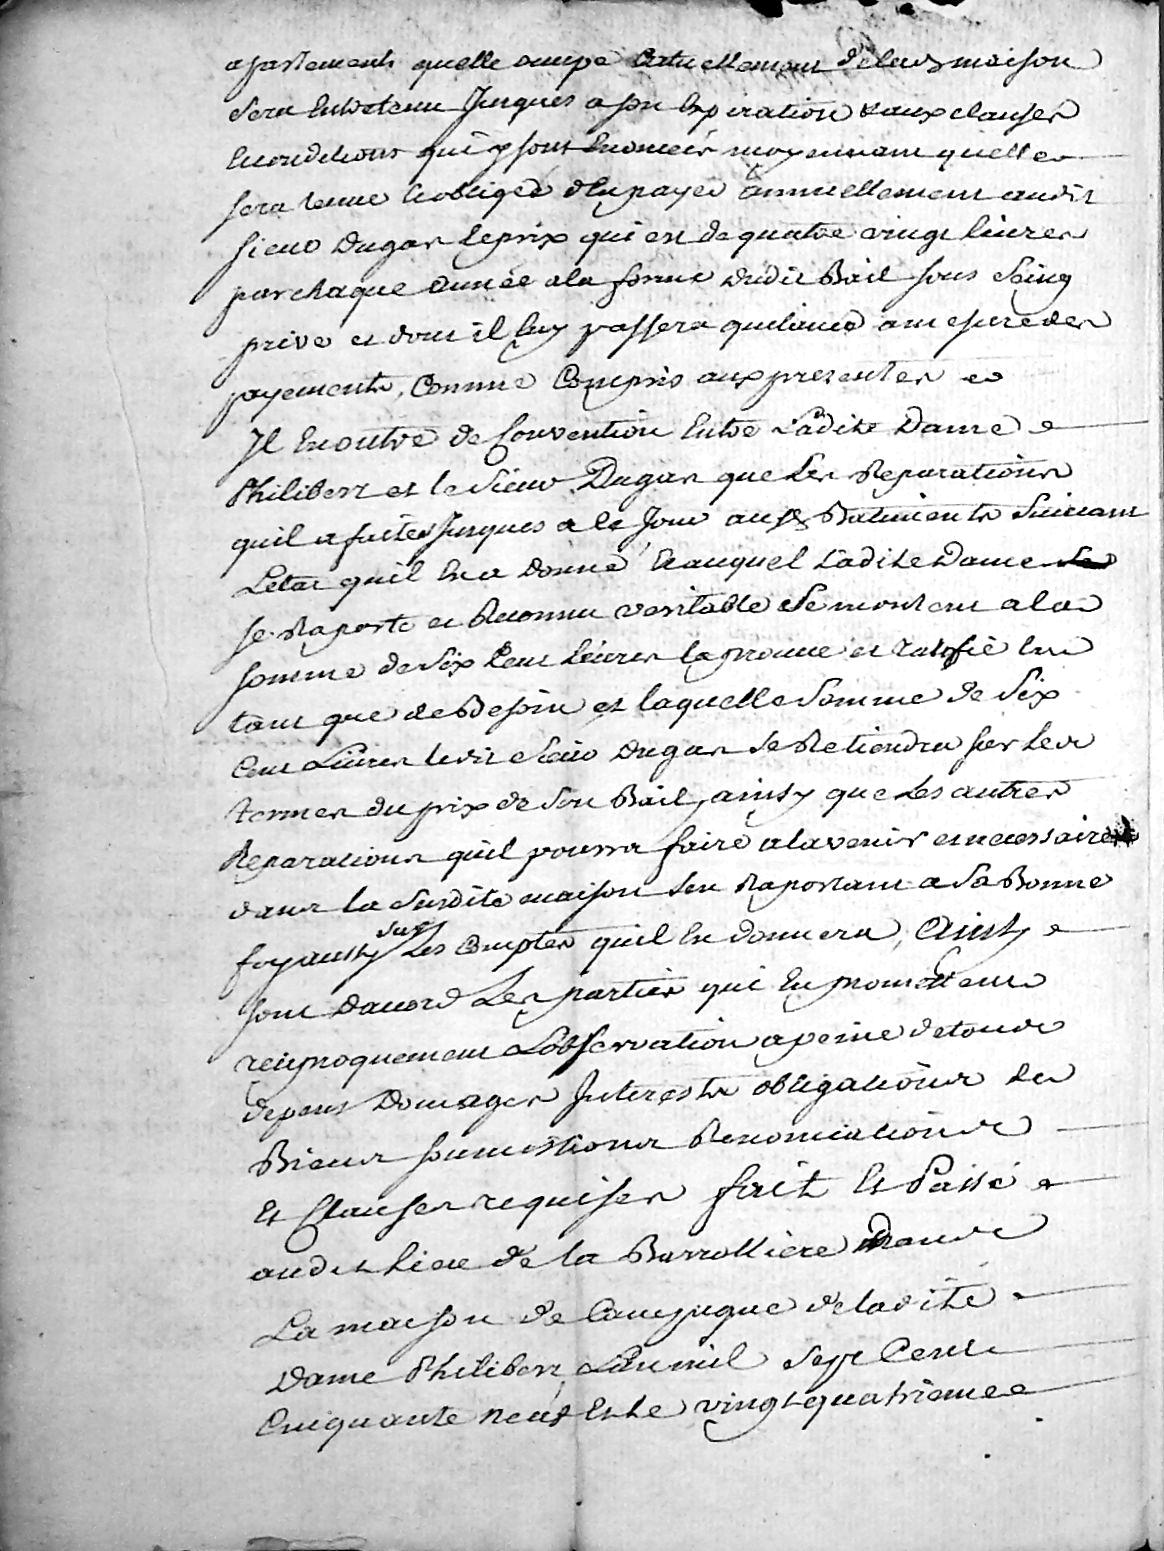 apartements quelle occupe actuellement delad maison
sera entretenu Jusques a son Expiration & aux clauses
Econditions qui y sont Enoncéés moyennant quelle
sera tenue & obligeé dEn payer annuellement audit
sieur Dugas leprix qui est de quatre vingt livres
par chaque année ala forme dudit Bail sous seing
privé et dont il luy passera quitance amesure des
payements, Comme Compris aux presentes
Il En outre de Convention Entre Ladite Dame
Philibert et le sieur Dugas que Les Reparations
quil a faites Jusques a ce Jour aux Batiments suivant
Letat quil En a donné Eauquel Ladite Dame
se Raporte et Reconnu veritable se montent ala
somme de six Cent Livres laprouve et ratifie En
tant que de Besoin et laquelle somme de six
Cent Livres ledit sieur Dugas se Retiendra sur les
termes du prix de son Bail, ainsy que Les autres
Reparations quil pourra faire alavenir et necessaires
dans la susdite maison sen Raportant a sa Bonne
foy aussy sur Les Comptes quil En donnera, Ainsy
sont daccord Les parties qui En promettent
reciproquement Lobservation a peine de tous
depens Domages Interests obligations de
Biens soumissions Renonciations
Et Clauses requises fait Et Passé
audit Lieu de la Barrolliere dans
La maison de Campagne deladite
Dame Philibert, Lan mil sept Cent
Cinquante neuf Et le vingt quatrieme